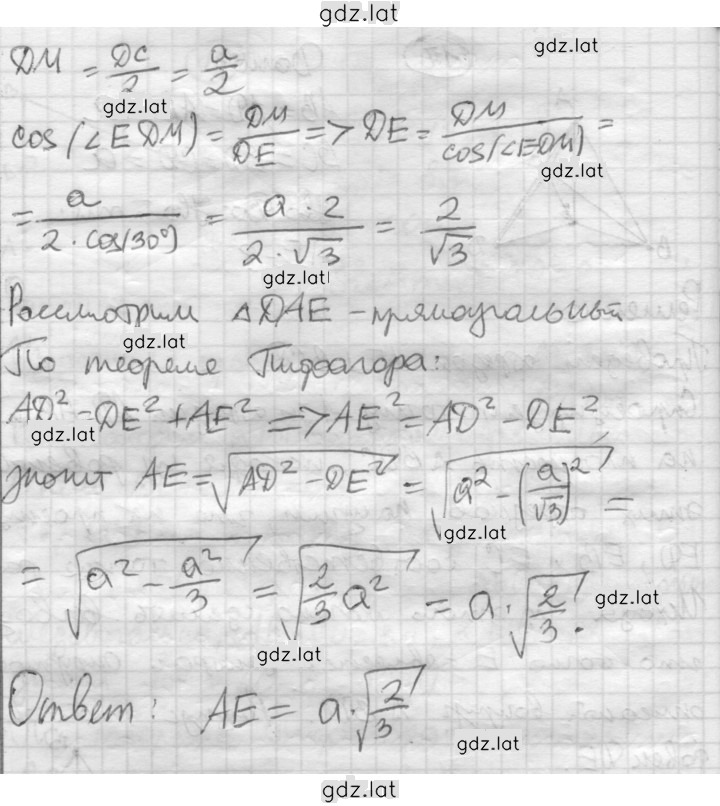 gdz.lat
gdz.lat
DM = DC/2 = a/2
gdz.lat
cos(∠EDM) = DM/DE => DE = DM/cos(∠EDM) =
gdz.lat
= a/(2·cos(30°)) = a·2/(2·√3) = 2/√3
gdz.lat
Рассмотрим △DAE – прямоугольный
gdz.lat
По теореме Пифагора:
AD² = DE² + AE² => AE² = AD² - DE²
gdz.lat
значит AE = √(AD² - DE²) = √(a² - (a/√3)²) =
gdz.lat
= √(a² - a²/3) = √(2/3 a²) = a·√(2/3).
gdz.lat
gdz.lat
Ответ: AE = a·√(2/3)
gdz.lat
gdz.lat